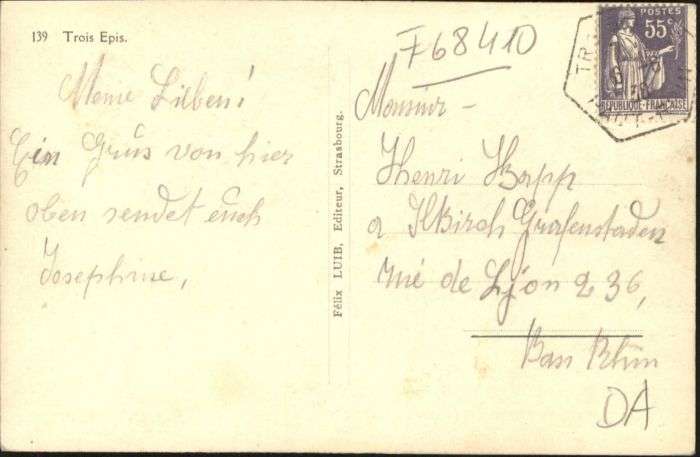 139 Trois Epis.
Meine Lieben!
Ein Grus von hier
oben sendet euch
Josephine,
Félix LUIB, Editeur, Strasbourg.
F68410
Monsieur -
Henri Bapp
a Ilkirch Grafenstaden
rue de Lyon 236,
Bas Rhin
DA
POSTES
55c
REPUBLIQUE-FRANÇAISE